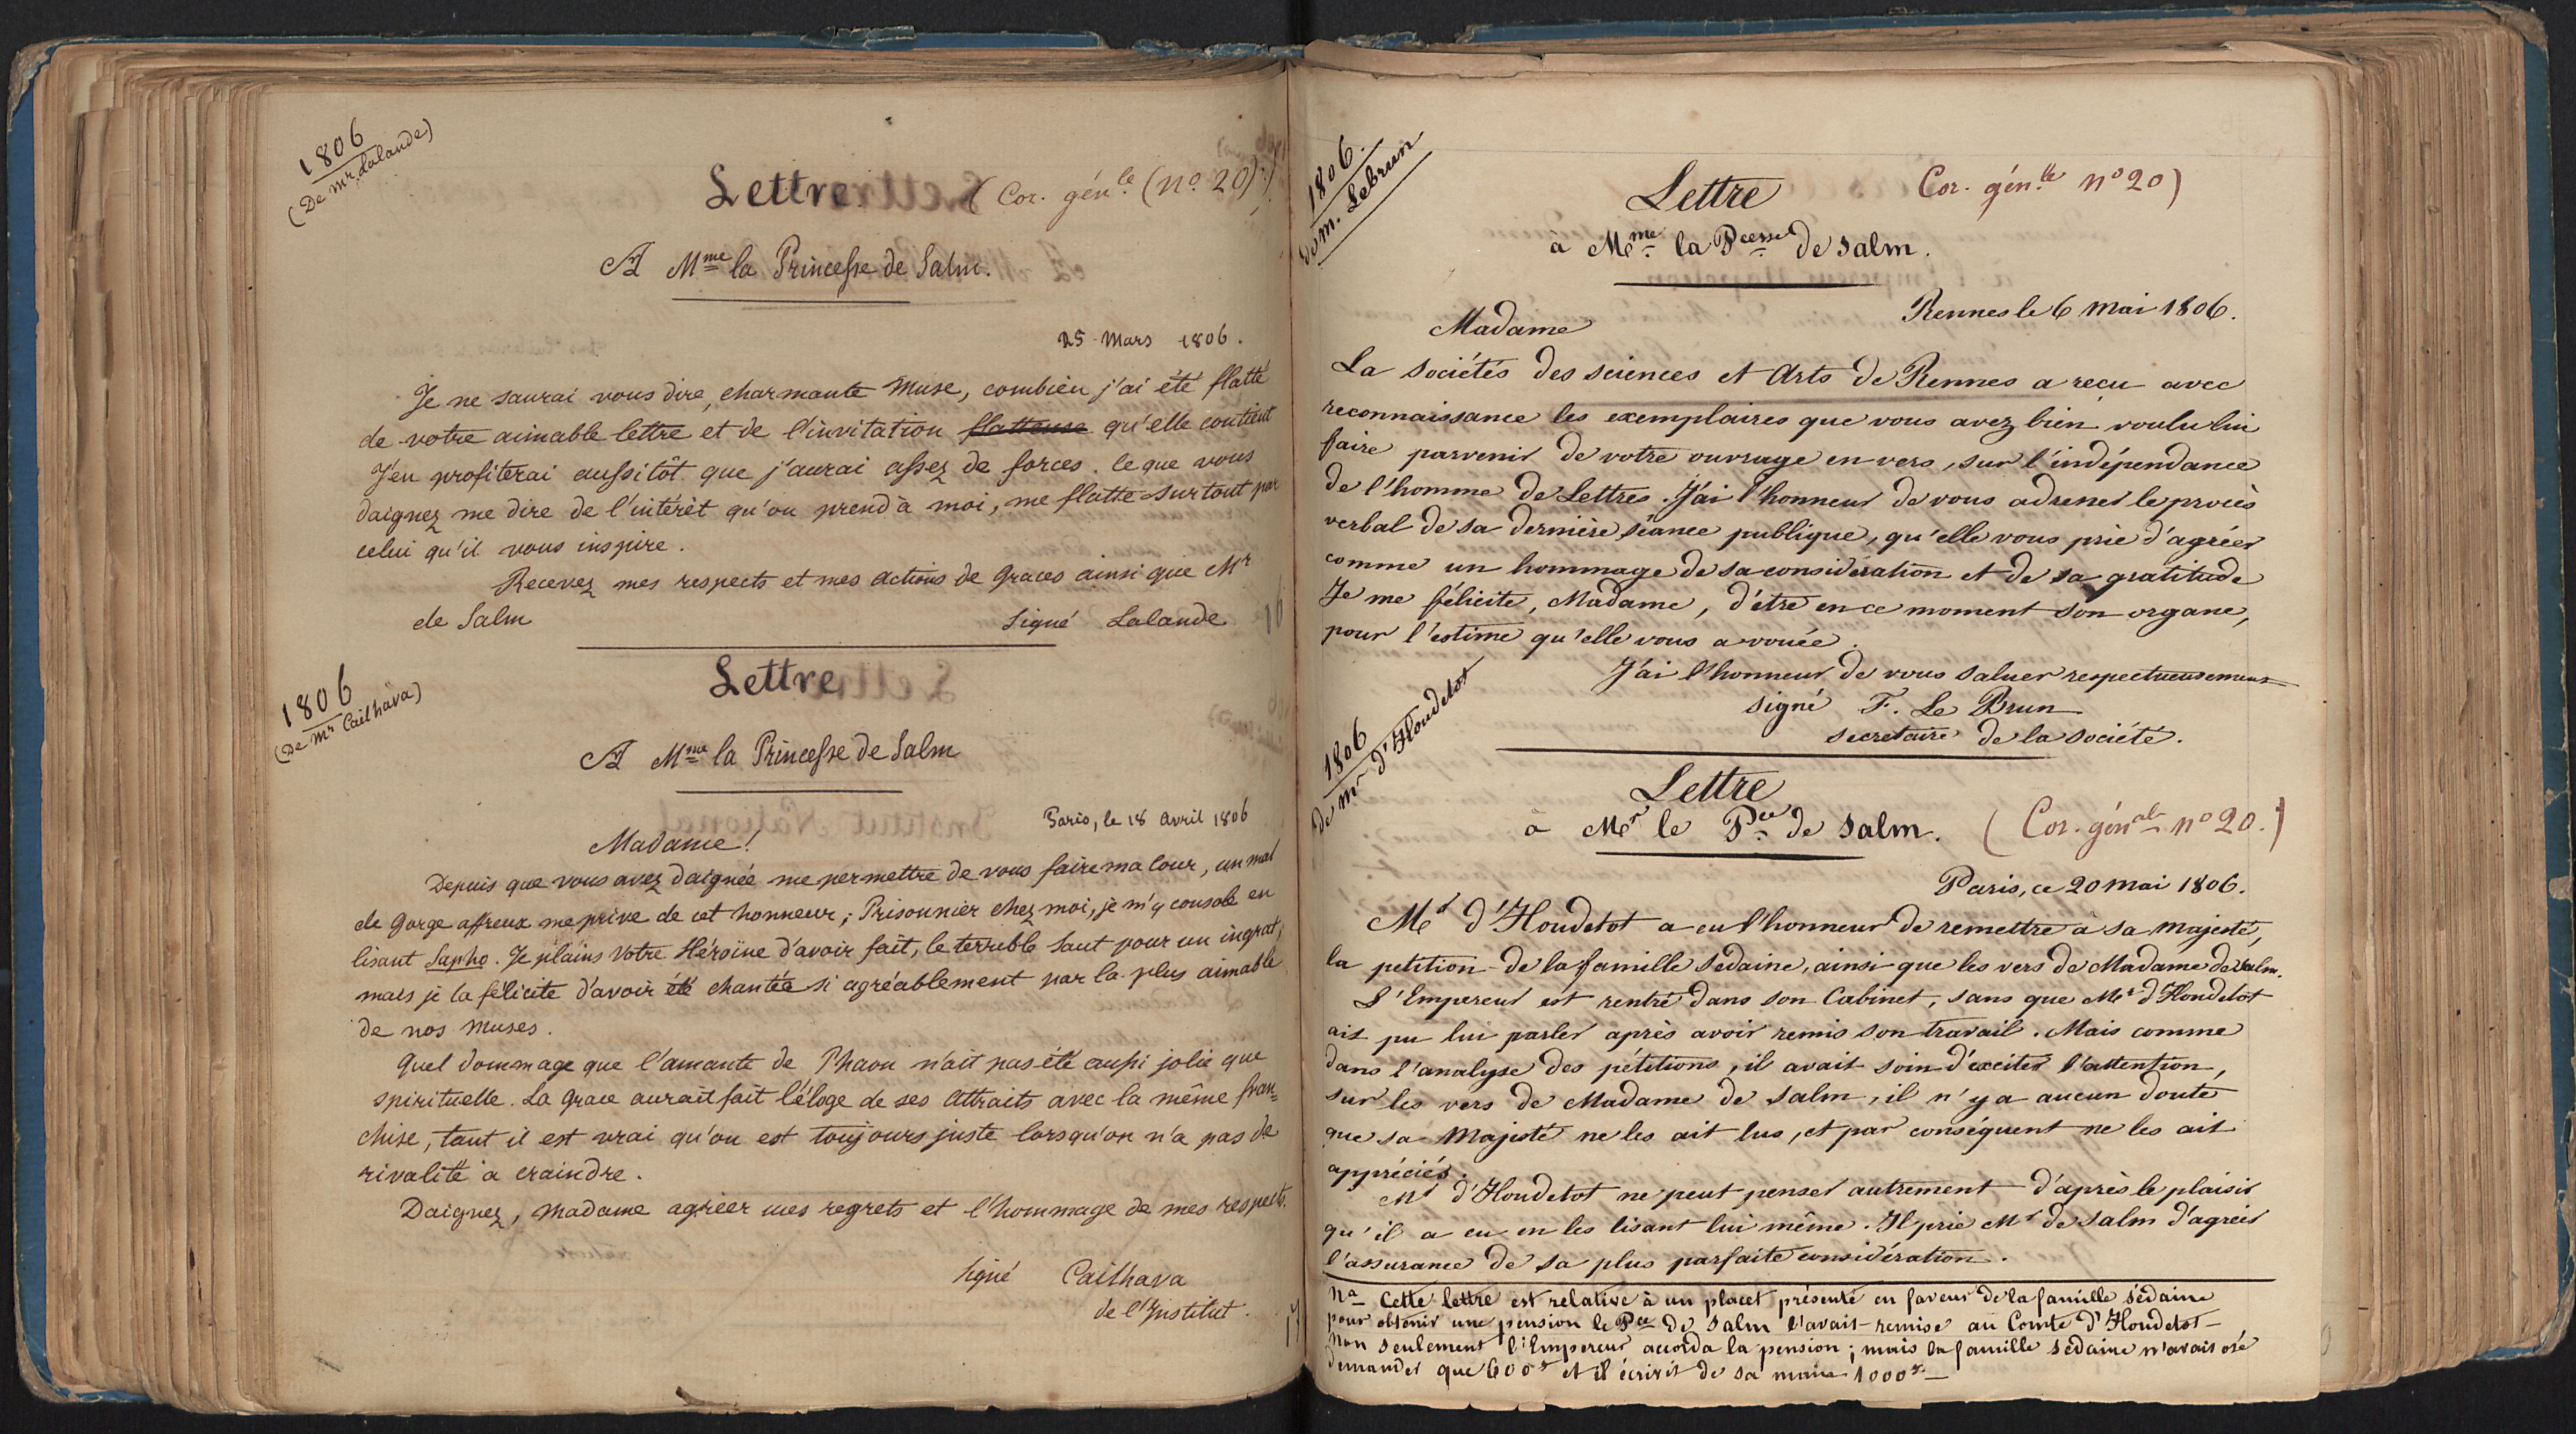 1806
(De Mr Lalande)
Lettre (Cor. génle (no 20).)
A Mme la Princesse de Salm.
25 Mars 1806.
Je ne saurai vous dire, charmante Muse, combien j'ai été flatté
de votre aimable lettre et de l'invitation flatteuse qu'elle contient
J'en profiterai aussitôt que j'aurai assez de forces. ce que vous
daignez me dire de l'intérêt qu'on prend à moi, me flatte surtout par
celui qu'il vous inspire.
Recevez mes respects et mes actions de Graces ainsi que Mr
de Salm
Signé Lalande
1806
(De Mr Cailhava)
Lettre
A Mme la Princesse de Salm
Paris, le 18 Avril 1806
Madame!
Depuis que vous avez daignée me permettre de vous faire ma Cour, un mal
de Gorge affreux me prive de cet honneur; Prisonnier chez moi, je m'y console en
lisant Sapho. Je plains votre Héroïne d'avoir fait, le terrible Saut pour un ingrat,
mais je la félicite d'avoir été chantée si agréablement par la plus aimable
de nos Muses.
Quel dommage que l'amante de Phaon n'ait pas été aussi jolie que
spirituelle. La Grace aurait fait l'éloge de ses Attraits avec la même fran=
chise, tant il est vrai qu'on est toujours juste lorsqu'on n'a pas de
rivalité à craindre.
Daignez, Madame agréer mes regrets et l'hommage de mes respects.
Signé Cailhava
de l'Institut.
1806.
de M. Lebrun
Lettre Cor. génlle no 20)
à Mme la Pcesse de Salm.
Rennes le 6 Mai 1806.
Madame
La Sociétés des Sciences et Arts de Rennes a reçu avec
reconnaissance les exemplaires que vous avez bien voulu lui
faire parvenir de votre ouvrage en vers, sur l'indépendance
de l'homme de Lettres. J'ai l'honneur de vous adresser le procès
verbal de sa dernière séance publique, qu'elle vous prie d'agréer
comme un hommage de sa considération et de sa gratitude
Je me félicite, Madame, d'être en ce moment son organe,
pour l'estime qu'elle vous a vouée.
J'ai l'honneur de vous saluer respectueusement
signé F. Le Brun
secretaire de la société.
1806
de Mr d'Houdetot
Lettre
à Mr le Pce de Salm. (Cor. génale no 20.)
Paris, ce 20 Mai 1806.
Mr d'Houdetot a eu l'honneur de remettre à sa Majesté,
la petition de la famille Sedaine, ainsi que les vers de Madame de Salm.
L'Empereur est rentré dans son Cabinet, sans que Mr d'Houdetot
ait pu lui parler après avoir remis son travail. Mais comme
dans l'analyse des pétitions, il avait soin d'exciter l'attention,
sur les vers de Madame de Salm, il n'y a aucun doute
que sa Majesté ne les ait lus, et par conséquent ne les ait
appréciés.
Mr d'Houdetot ne peut penser autrement d'après le plaisir
qu'il a eu en les lisant lui même. Il prie Mr de Salm d'agréer
l'assurance de sa plus parfaite considération.
Na Cette lettre est relative à un placet présenté en faveur de la famille Sédaine
pour obtenir une pension le Pce de Salm l'avait remise au Comte d'Houdetot
Non seulement l'Empereur accorda la pension; mais la famille Sédaine n'avait osé
demander que 600 et il écrivit de sa main 1000